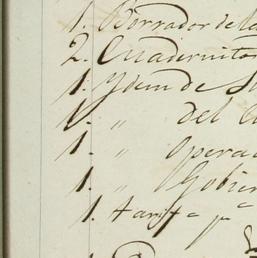 1. Borrador de la
2. Cuadernito
1. Ydem de
1. " del
1. " Opera
1. " Gobier
1. tarifa pª